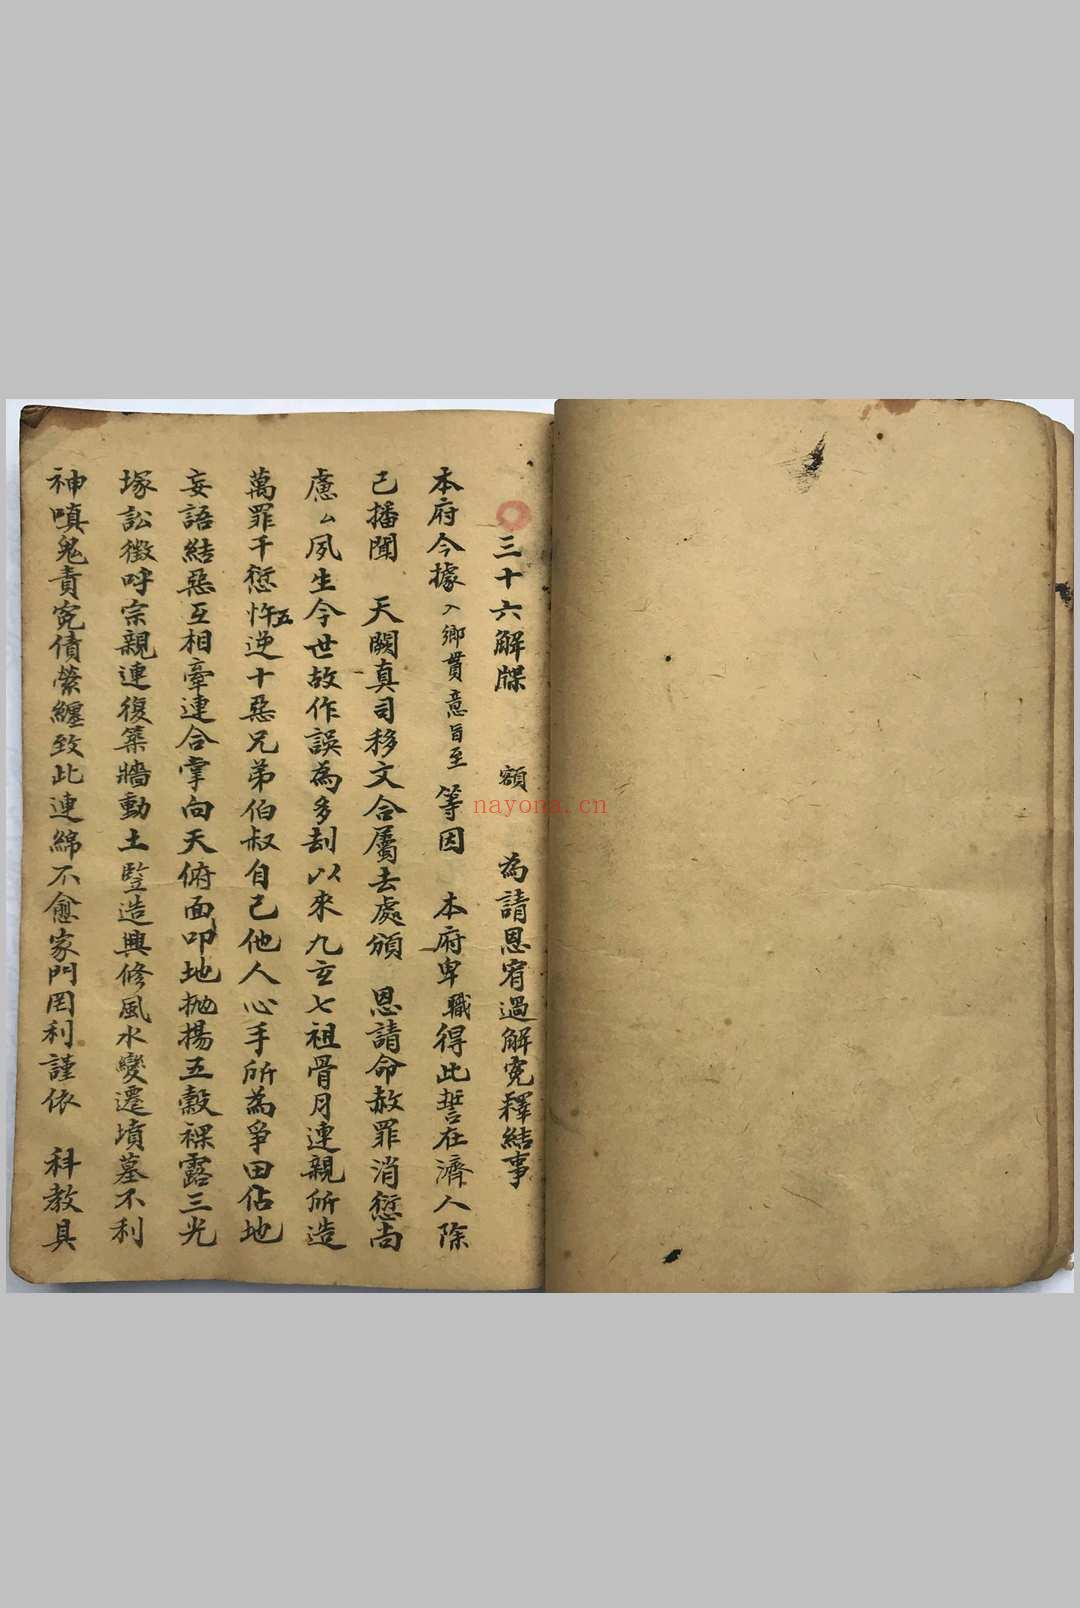 三十六解牒　額　為請恩宥過解寃釋結事
本府今據入鄉貫意旨至等因　本府卑職得此誓在濟人除
已播聞　天闕真司移文合屬去處頒　恩請命赦罪消愆尚
慮ㄙ夙生今世故作誤為多刦以來九玄七祖骨月連親所造
萬罪千愆五忤逆十惡兄弟伯叔自己他人心手所為爭田佔地
妄語結惡互相牽連合掌向天俯面叩地抛揚五穀裸露三光
塚訟徵呼宗親連復築牆動土豎造興修風水變遷墳墓不利
神嗔鬼責寃債縈纏致此連綿不愈家門罔利謹依　科教具
nayona.cn